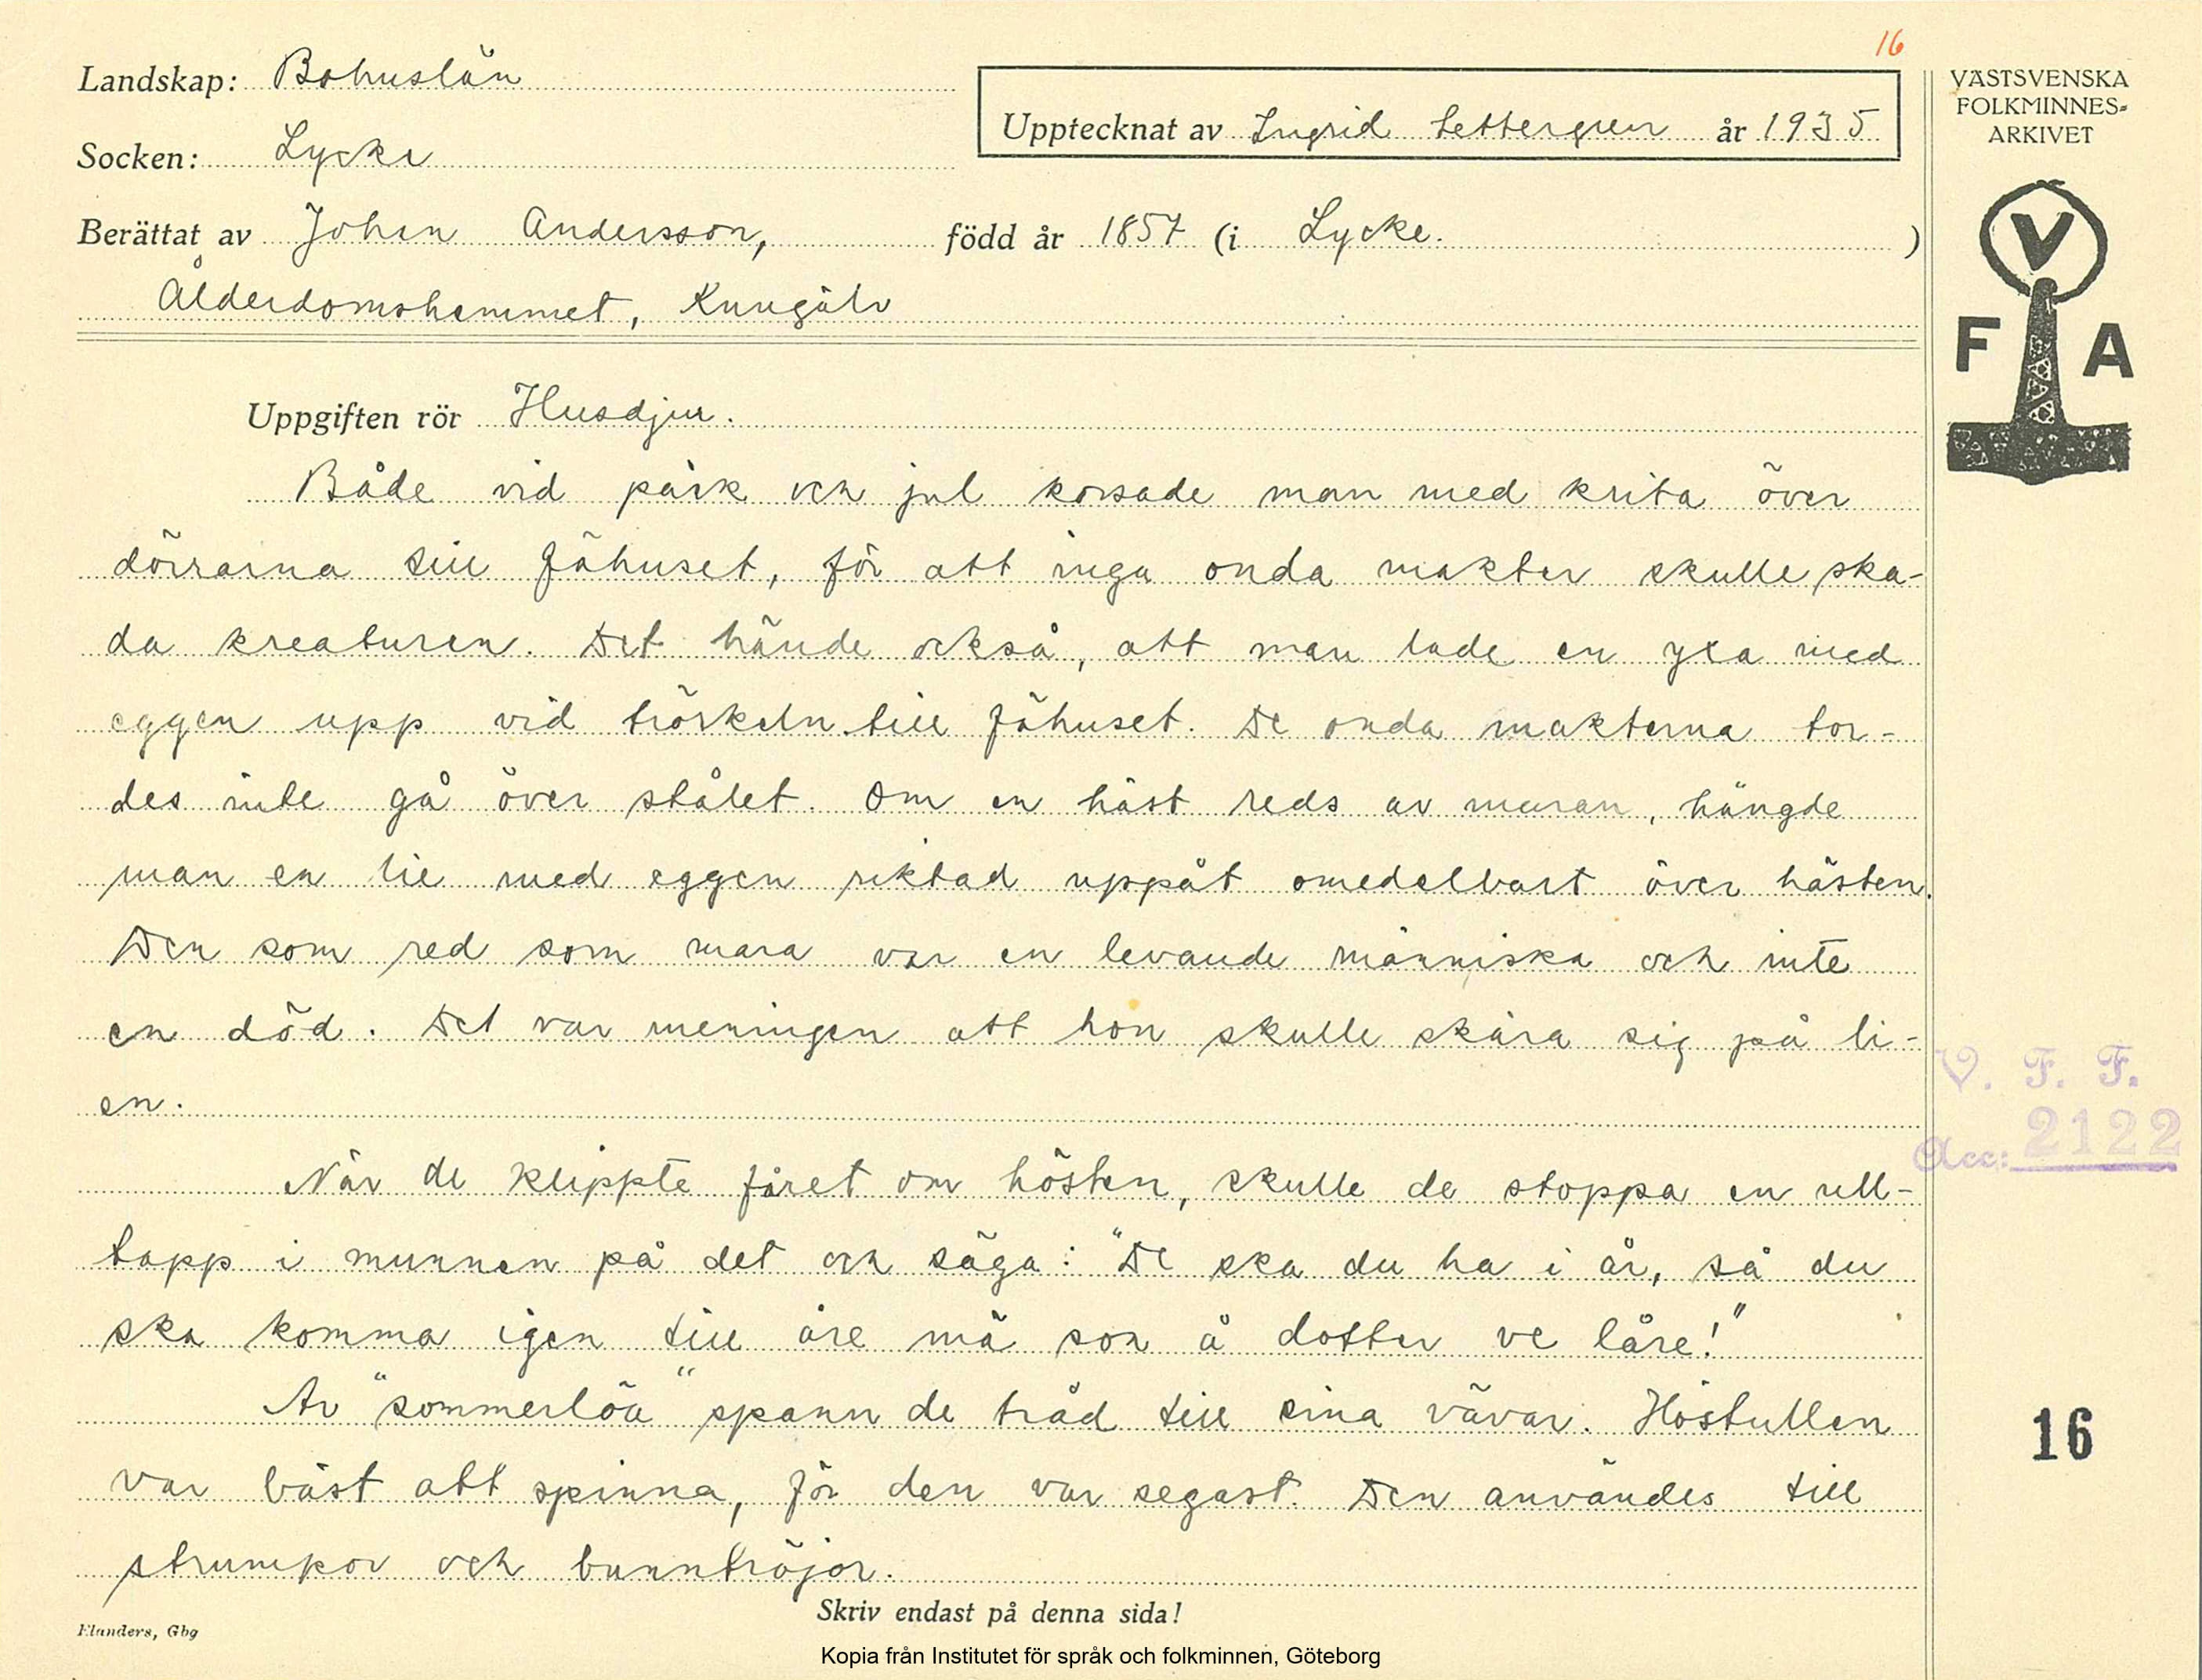 16
Landskap: Bohuslän
Socken: Lycke
Upptecknat av Ingrid Settergren år 1935
Berättat av Johan Andersson, född år 1857 (i Lycke. )
Ålderdomshemmet, Kungälv
VÄSTSVENSKA
FOLKMINNES-
ARKIVET
V
F A
Uppgiften rör Husdjur.
Både vid påsk och jul korsade man med krita över
dörrarna till fähuset, för att inga onda makter skulle ska-
da kreaturen. Det hände också, att man lade en yxa med
eggen upp vid tröskeln till fähuset. De onda makterna tor-
des inte gå över stålet. Om en häst reds av maran, hängde
man en lie med eggen riktad uppåt omedelbart över hästen.
Den som red som mara var en levande människa och inte
en död. Det var meningen att hon skulle skära sig på li-
en.
När de klippte fåret om hösten, skulle de stoppa en ull-
tapp i munnen på det och säga: "De ska du ha i år, så du
ska komma igen till åre mä son å dotter ve låre!"
Av "sommerlöa" spann de tråd till sina vävar. Höstullen
var bäst att spinna, för den var segast. Den användes till
strumpor och bunntröjor.
V. F. F.
Acc: 2122
16
Skriv endast på denna sida!
Elanders, Gbg
Kopia från Institutet för språk och folkminnen, Göteborg